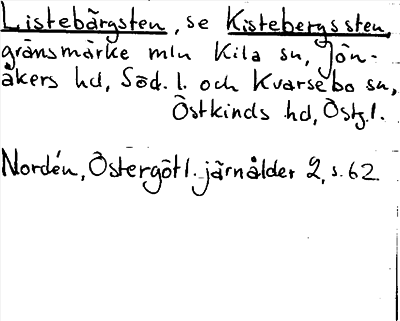 Listebärgsten, se Kistebergssten,
gränsmärke mln Kila sn, Jön-
åkers hd, Söd.l. och Kvarsebo sn,
Östkinds hd, Östg.l.
Nordén, Östergötl. järnålder 2, s. 62.